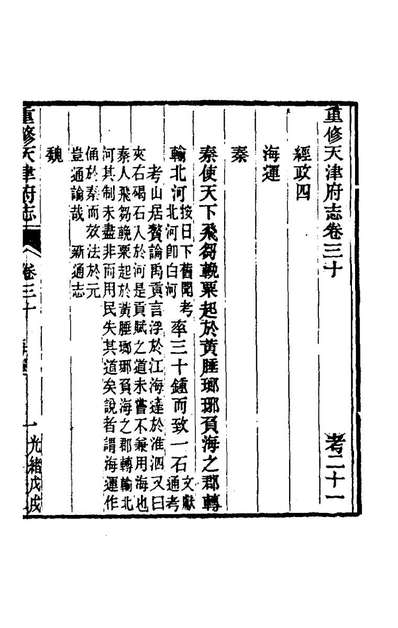 重修天津府志卷三十　考二十一
經政四
海運
秦
秦使天下飛芻輓粟起於黃腄瑯琊負海之郡轉
輸北河按日下舊聞考北河即白河率三十鍾而致一石文獻通考
考山居贅論禹貢言浮於江海達於淮泗又曰
夾右碣石入於河是貢賦之道未嘗不兼用海也
秦人飛芻輓粟起於黃腄瑯琊負海之郡轉輸北
河其制未盡非而用民失其道矣說者謂海運作
俑於秦而效法於元
豈通論哉　新通志
魏
重修天津府志　卷三十　一　光緒戊戌